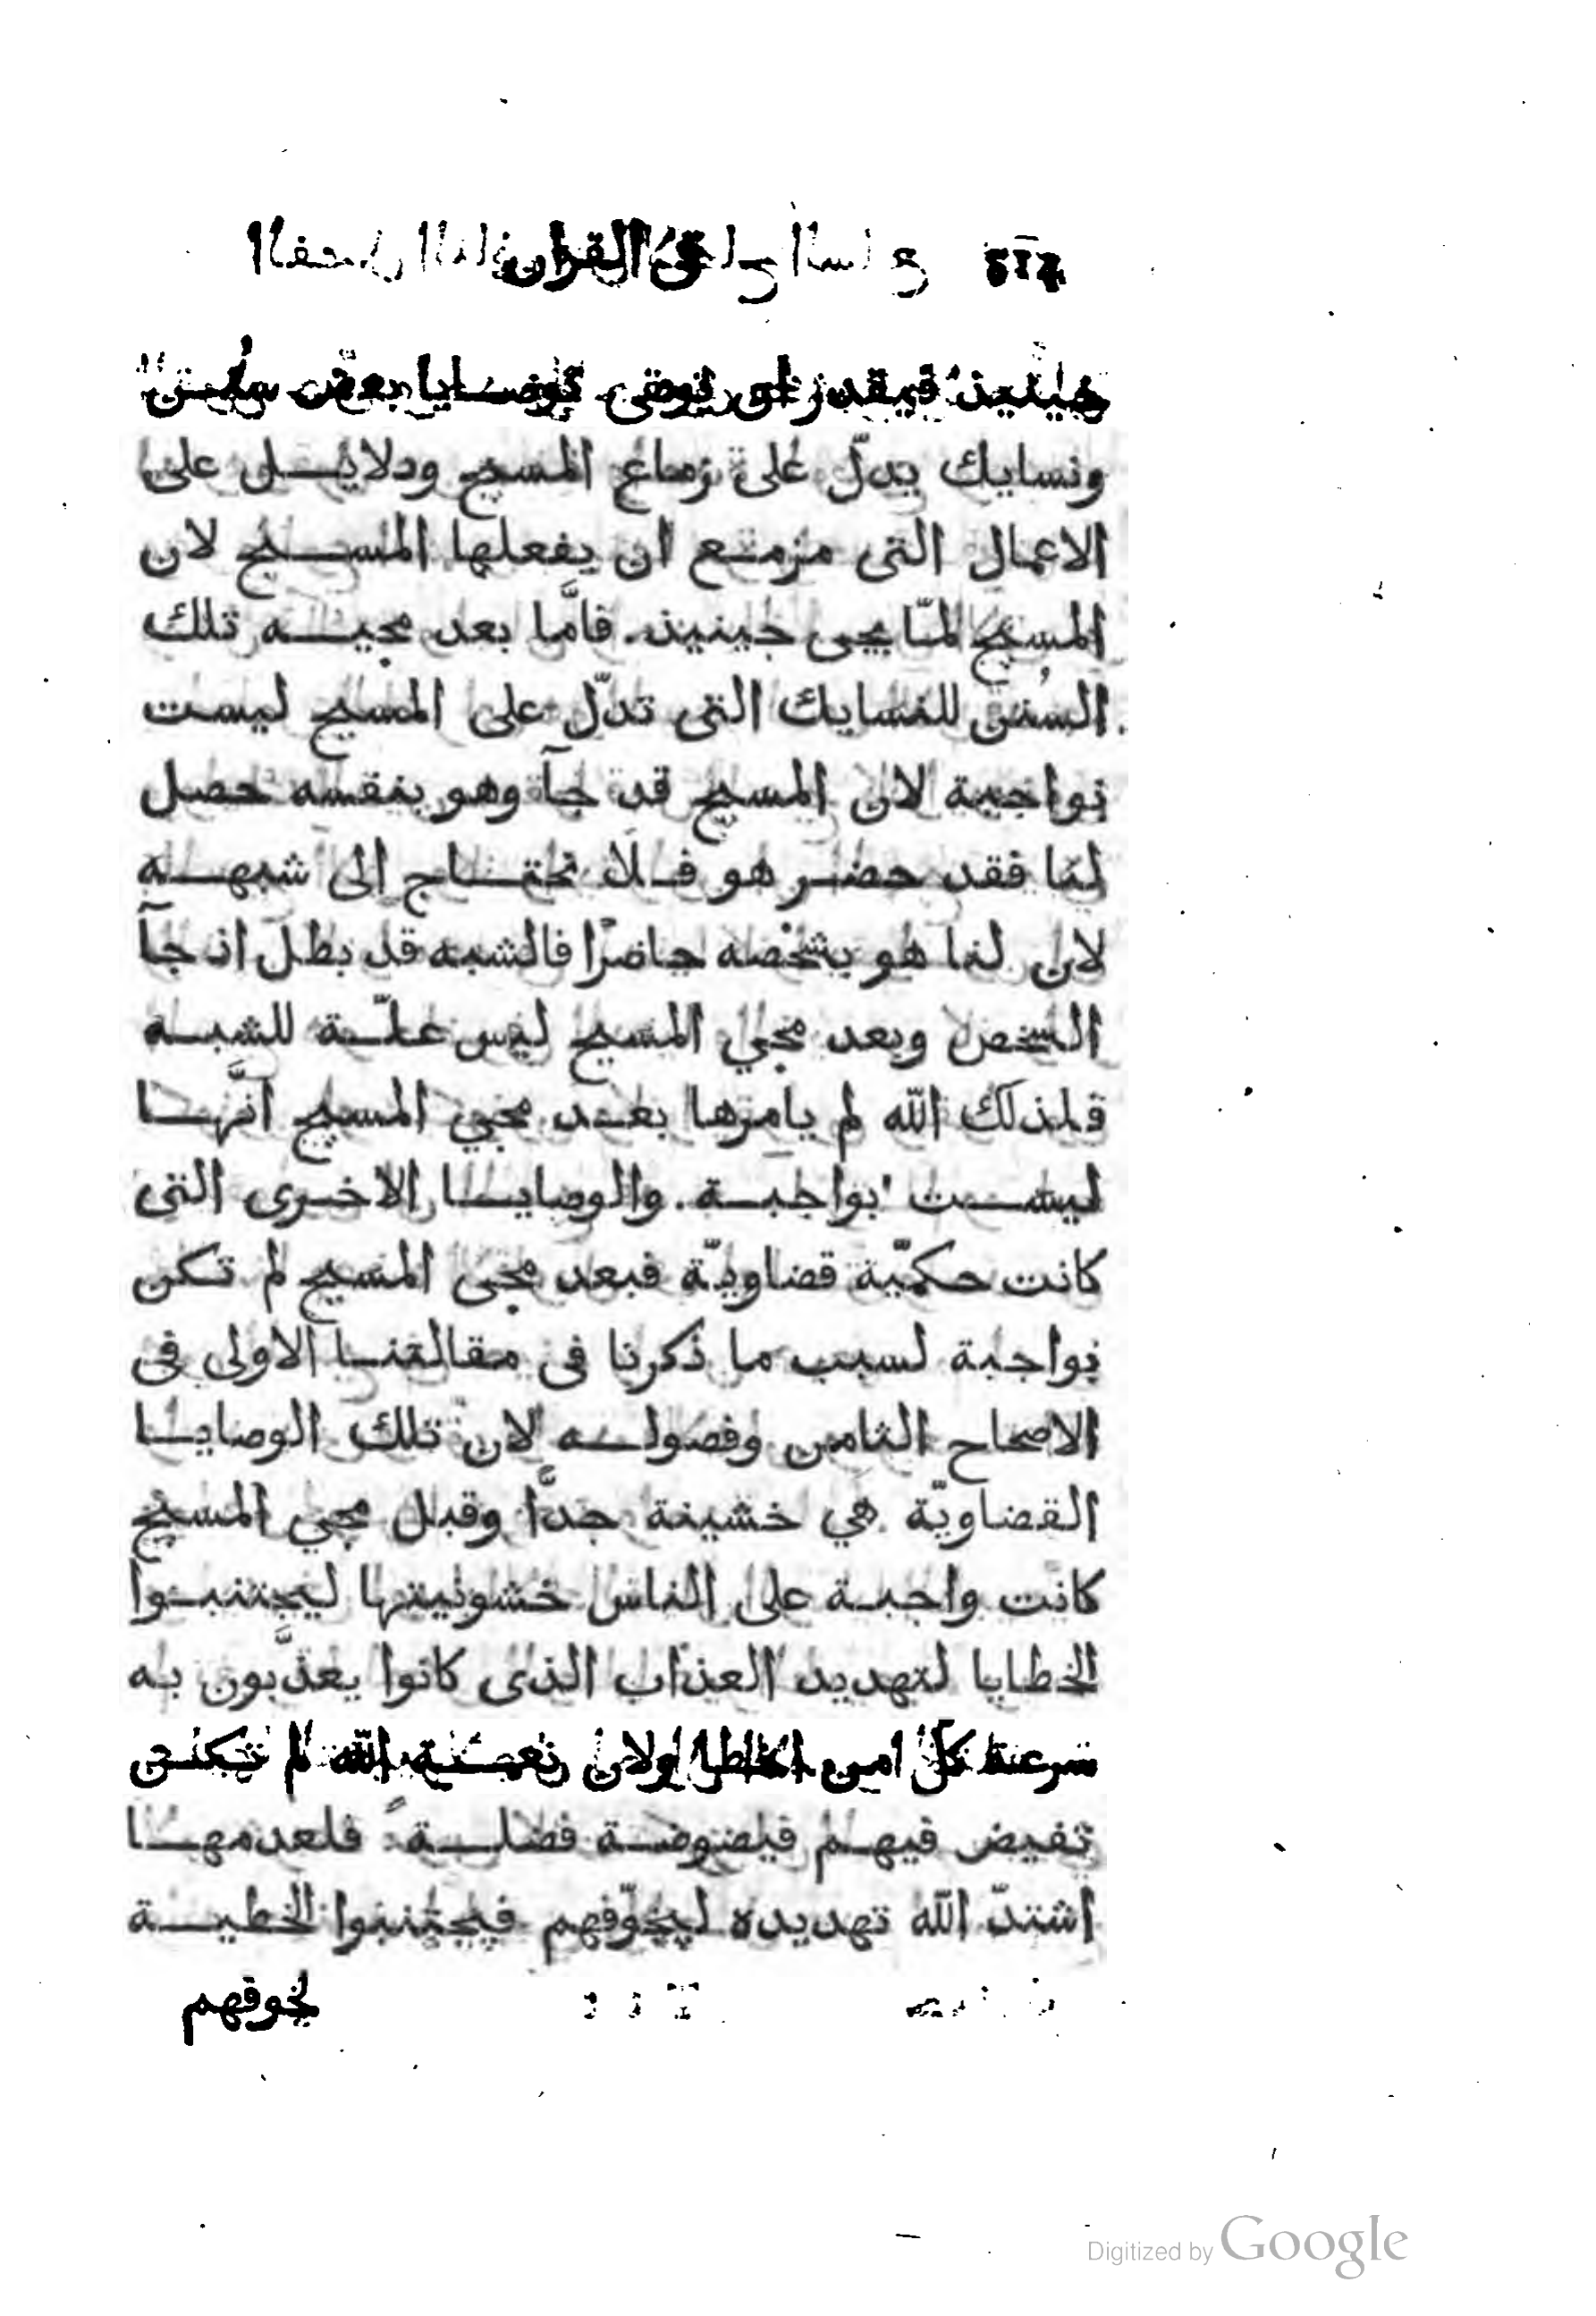 في القران
حينيذ فيقدر نوصى بعض سنن
ونسايك يدلّ على زماع المسيح ودلايل على
الاعمال التى مزمع ان يفعلها المسيح لان
المسيح لمّا يجى حينيذ. فامَّا بعد مجيه تلك
السنن للنسايك التى تدلّ على المسيح ليست
بواجبة لان المسيح قد جآ وهو بنفسه حصل
لنا فقد حضر هو فلا نحتاج الى شبهه
لان لنا هو بشخصه حاضرًا فالشبه قد بطل اذ جآ
الشخص وبعد مجي المسيح ليس علّة للشبه
فلذلك الله لم يامرها بعد مجي المسيح انَّها
ليست بواجبة. والوصايا الاخرى التى
كانت حكميّة قضاويّة فبعد مجى المسيح لم تكن
بواجبة لسبب ما ذكرنا فى مقالتنا الاولى فى
الاصحاح الثامن وفصوله لان تلك الوصايا
القضاويّة هي خشينة جدًّا وقبل مجي المسيح
كانت واجبة على الناس خشونيتها ليجتنبوا
الخطايا لتهديد العذاب الذى كانوا يعذَّبون به
سرعة كلّ من اخطا ولان نعمة الله لم تكن
تفيض فيهم فيضوضة فضلية فلعدمها
اشتدّ الله تهديده ليخوّفهم فيجتنبوا الخطية
لخوفهم
Digitized by Google